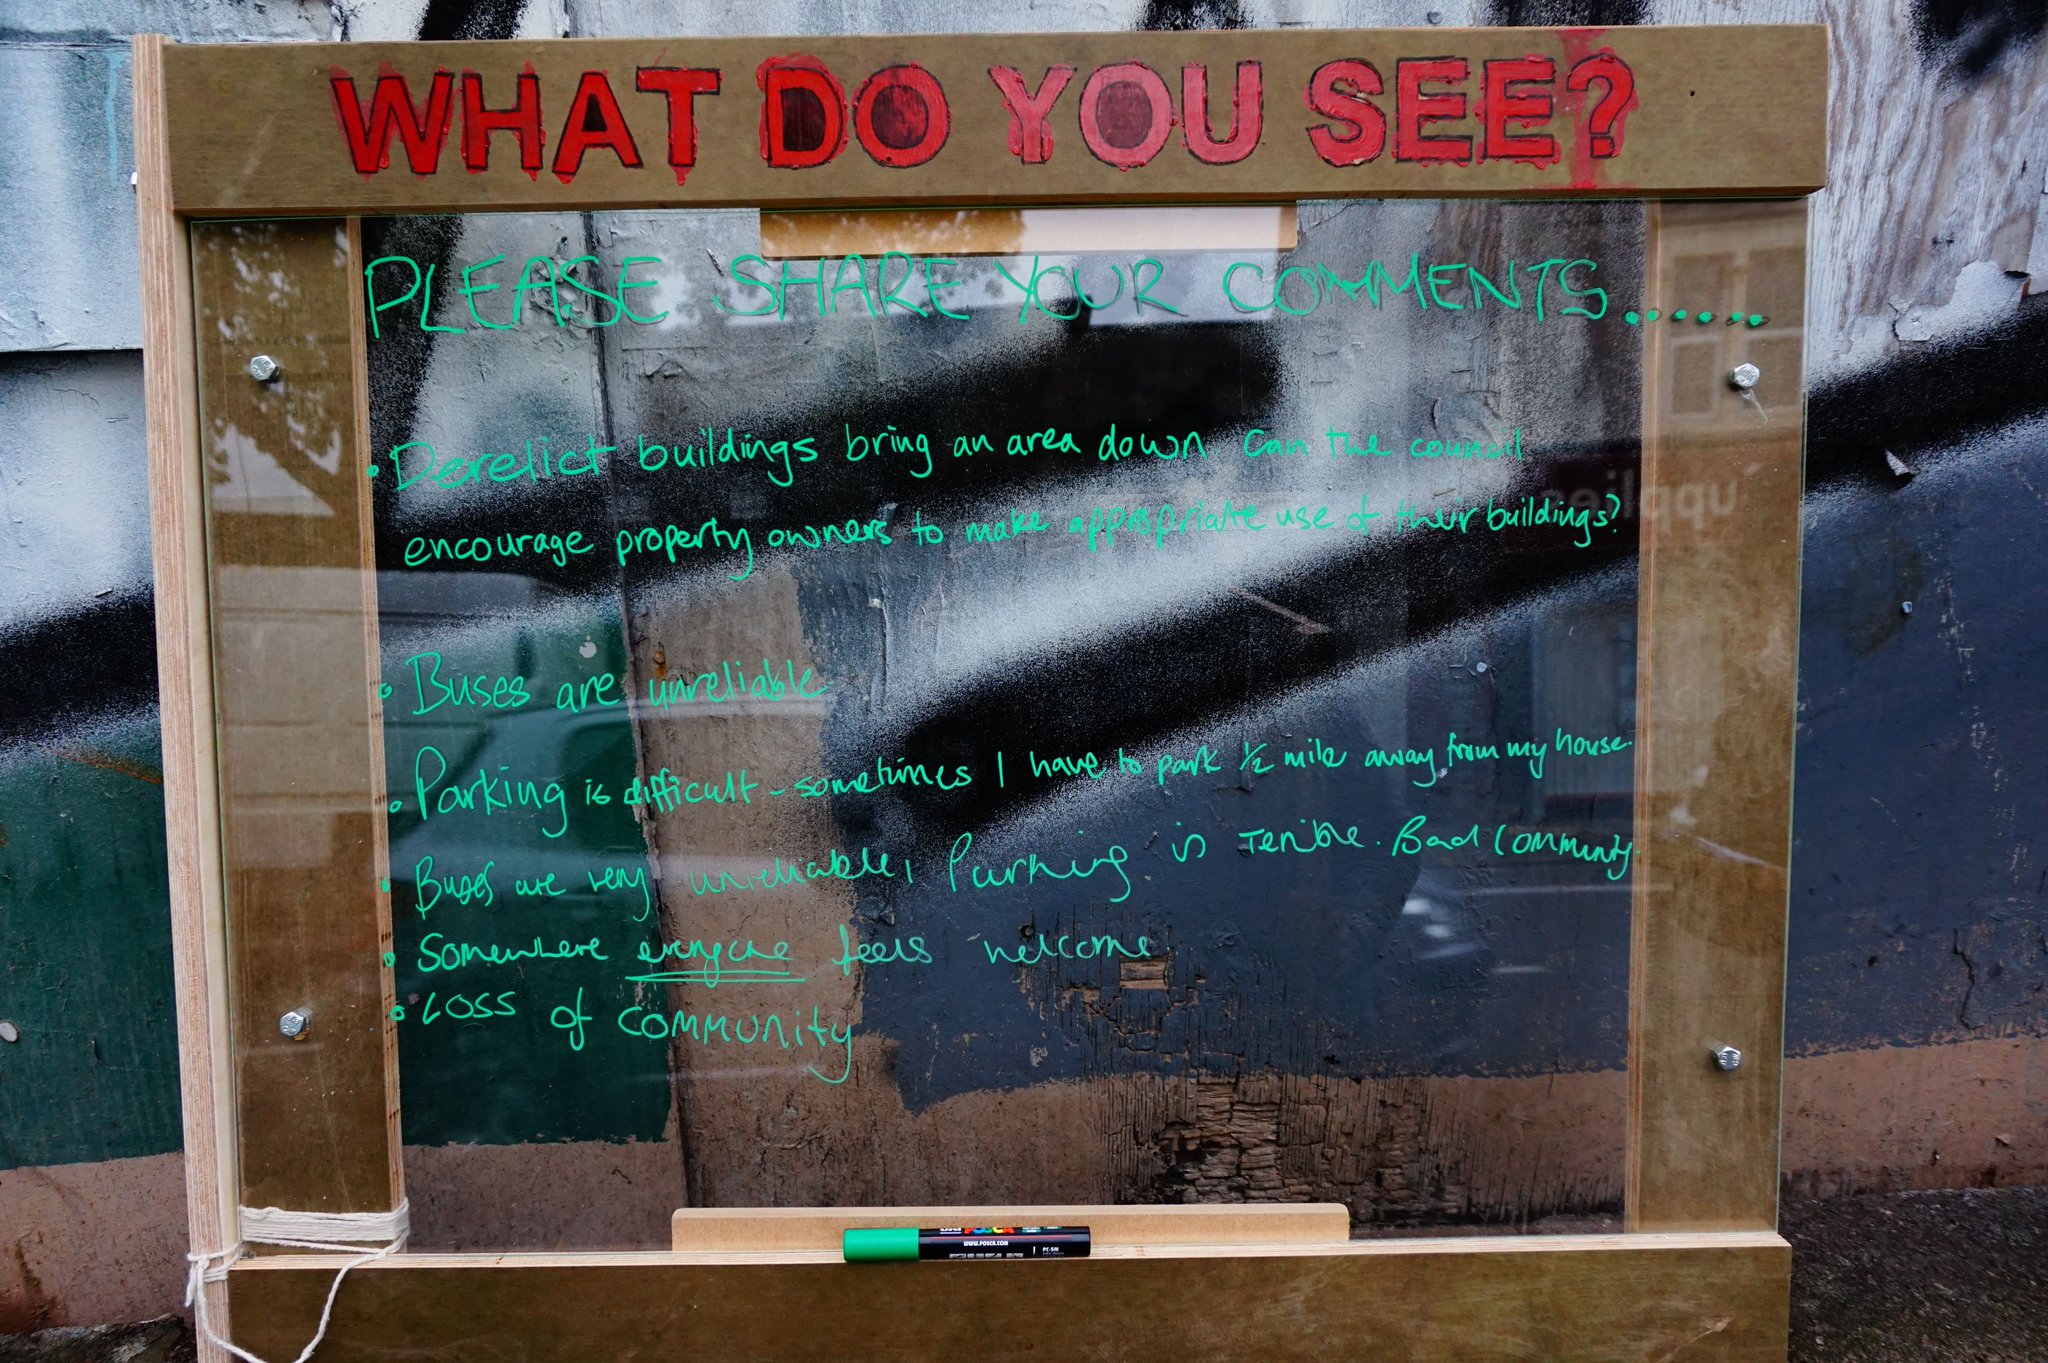 WHAT DO YOU SEE?
PLEASE SHARE YOUR COMMENTS.......
• Derelict buildings bring an area down. Can the council
encourage property owners to make appropriate use of their buildings?
• Buses are unreliable
• Parking is difficult - sometimes I have to park 1/2 mile away from my house.
• Buses are very unreliable, Parking is Terrible. Bad Community.
• Somewhere everyone feels welcome
• LOSS of COMMUNITY
upplies
POSCA
WWW.POSCA.COM
PC-5M